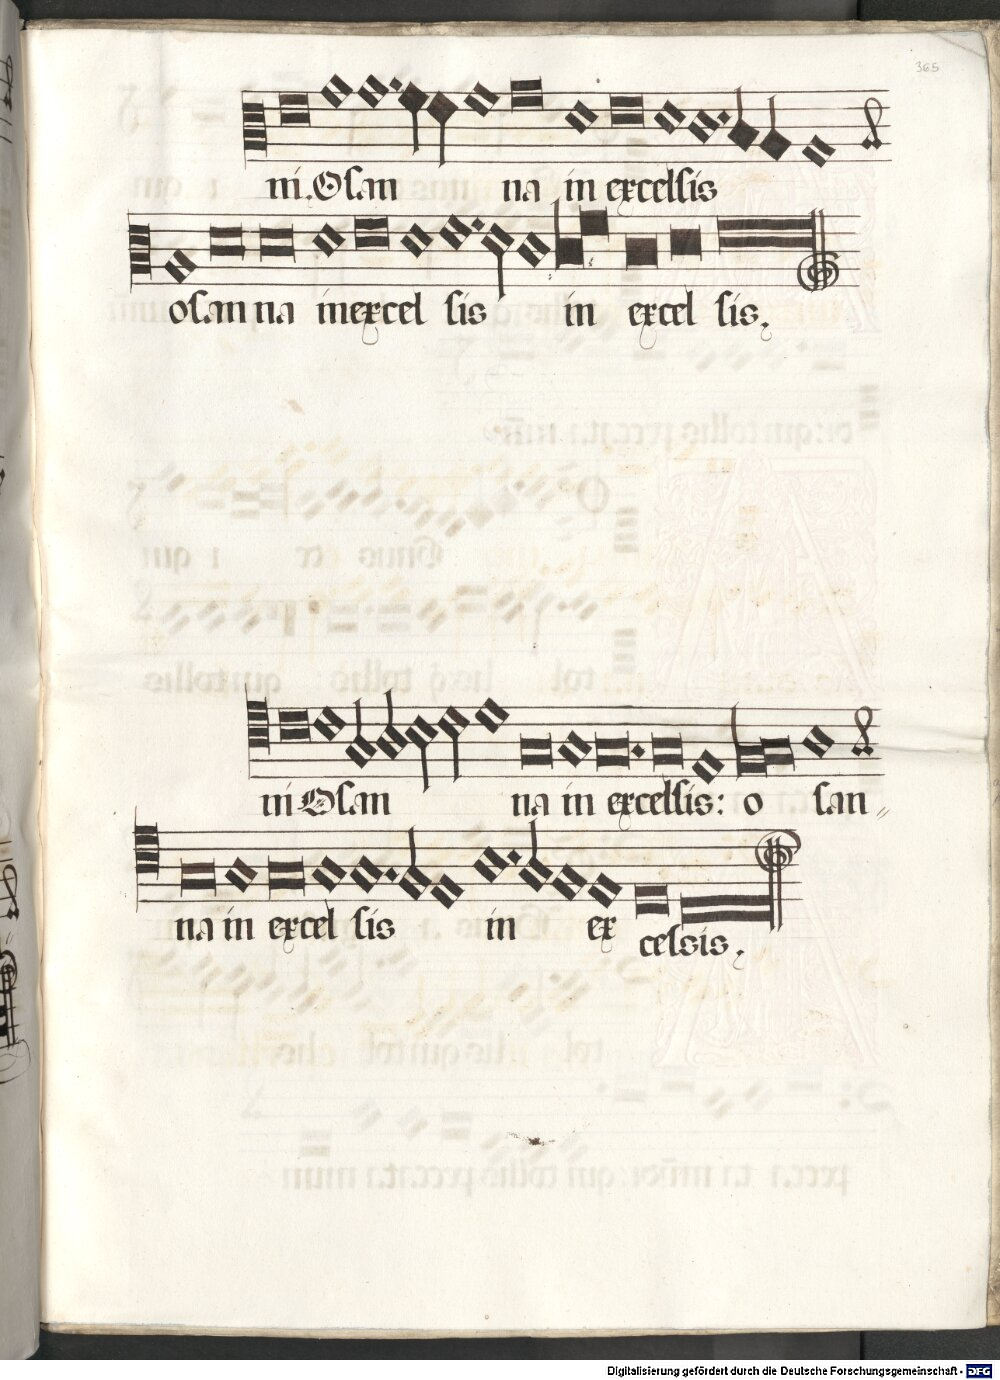 365
ni. Osan na in excelsis
osan na in excel sis in excel sis.
ni Osan na in excelsis: o san=
na in excel sis in ex celsis.
Digitalisierung gefördert durch die Deutsche Forschungsgemeinschaft - DFG